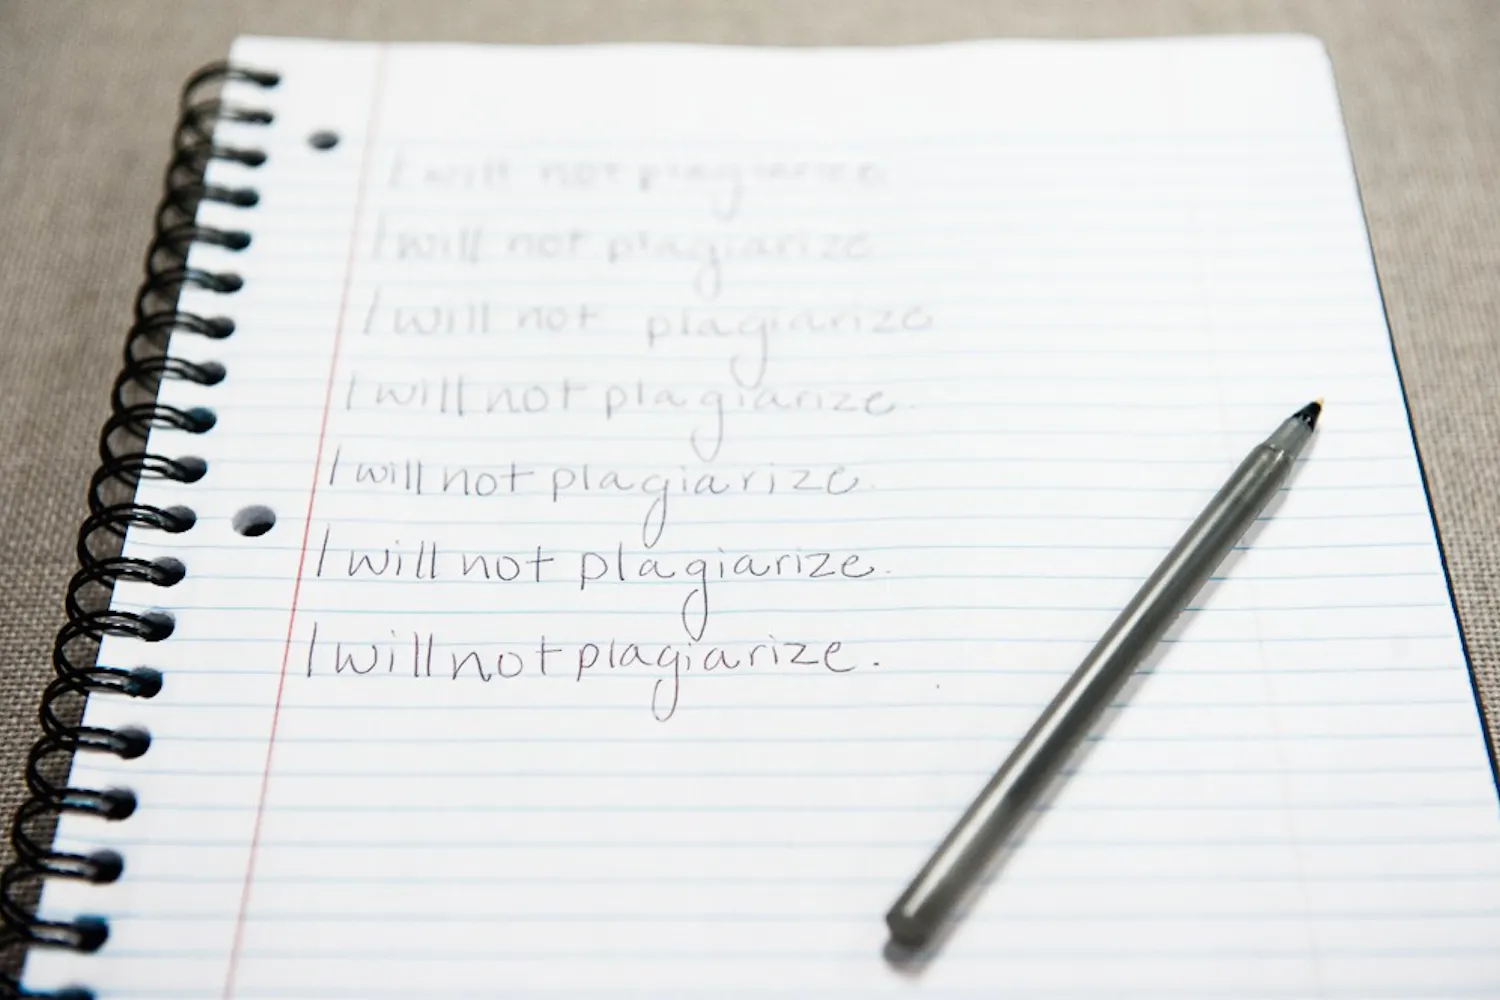 I will not plagiarize
I will not plagiarize
I will not plagiarize
I will not plagiarize.
I will not plagiarize.
I will not plagiarize.
I will not plagiarize.